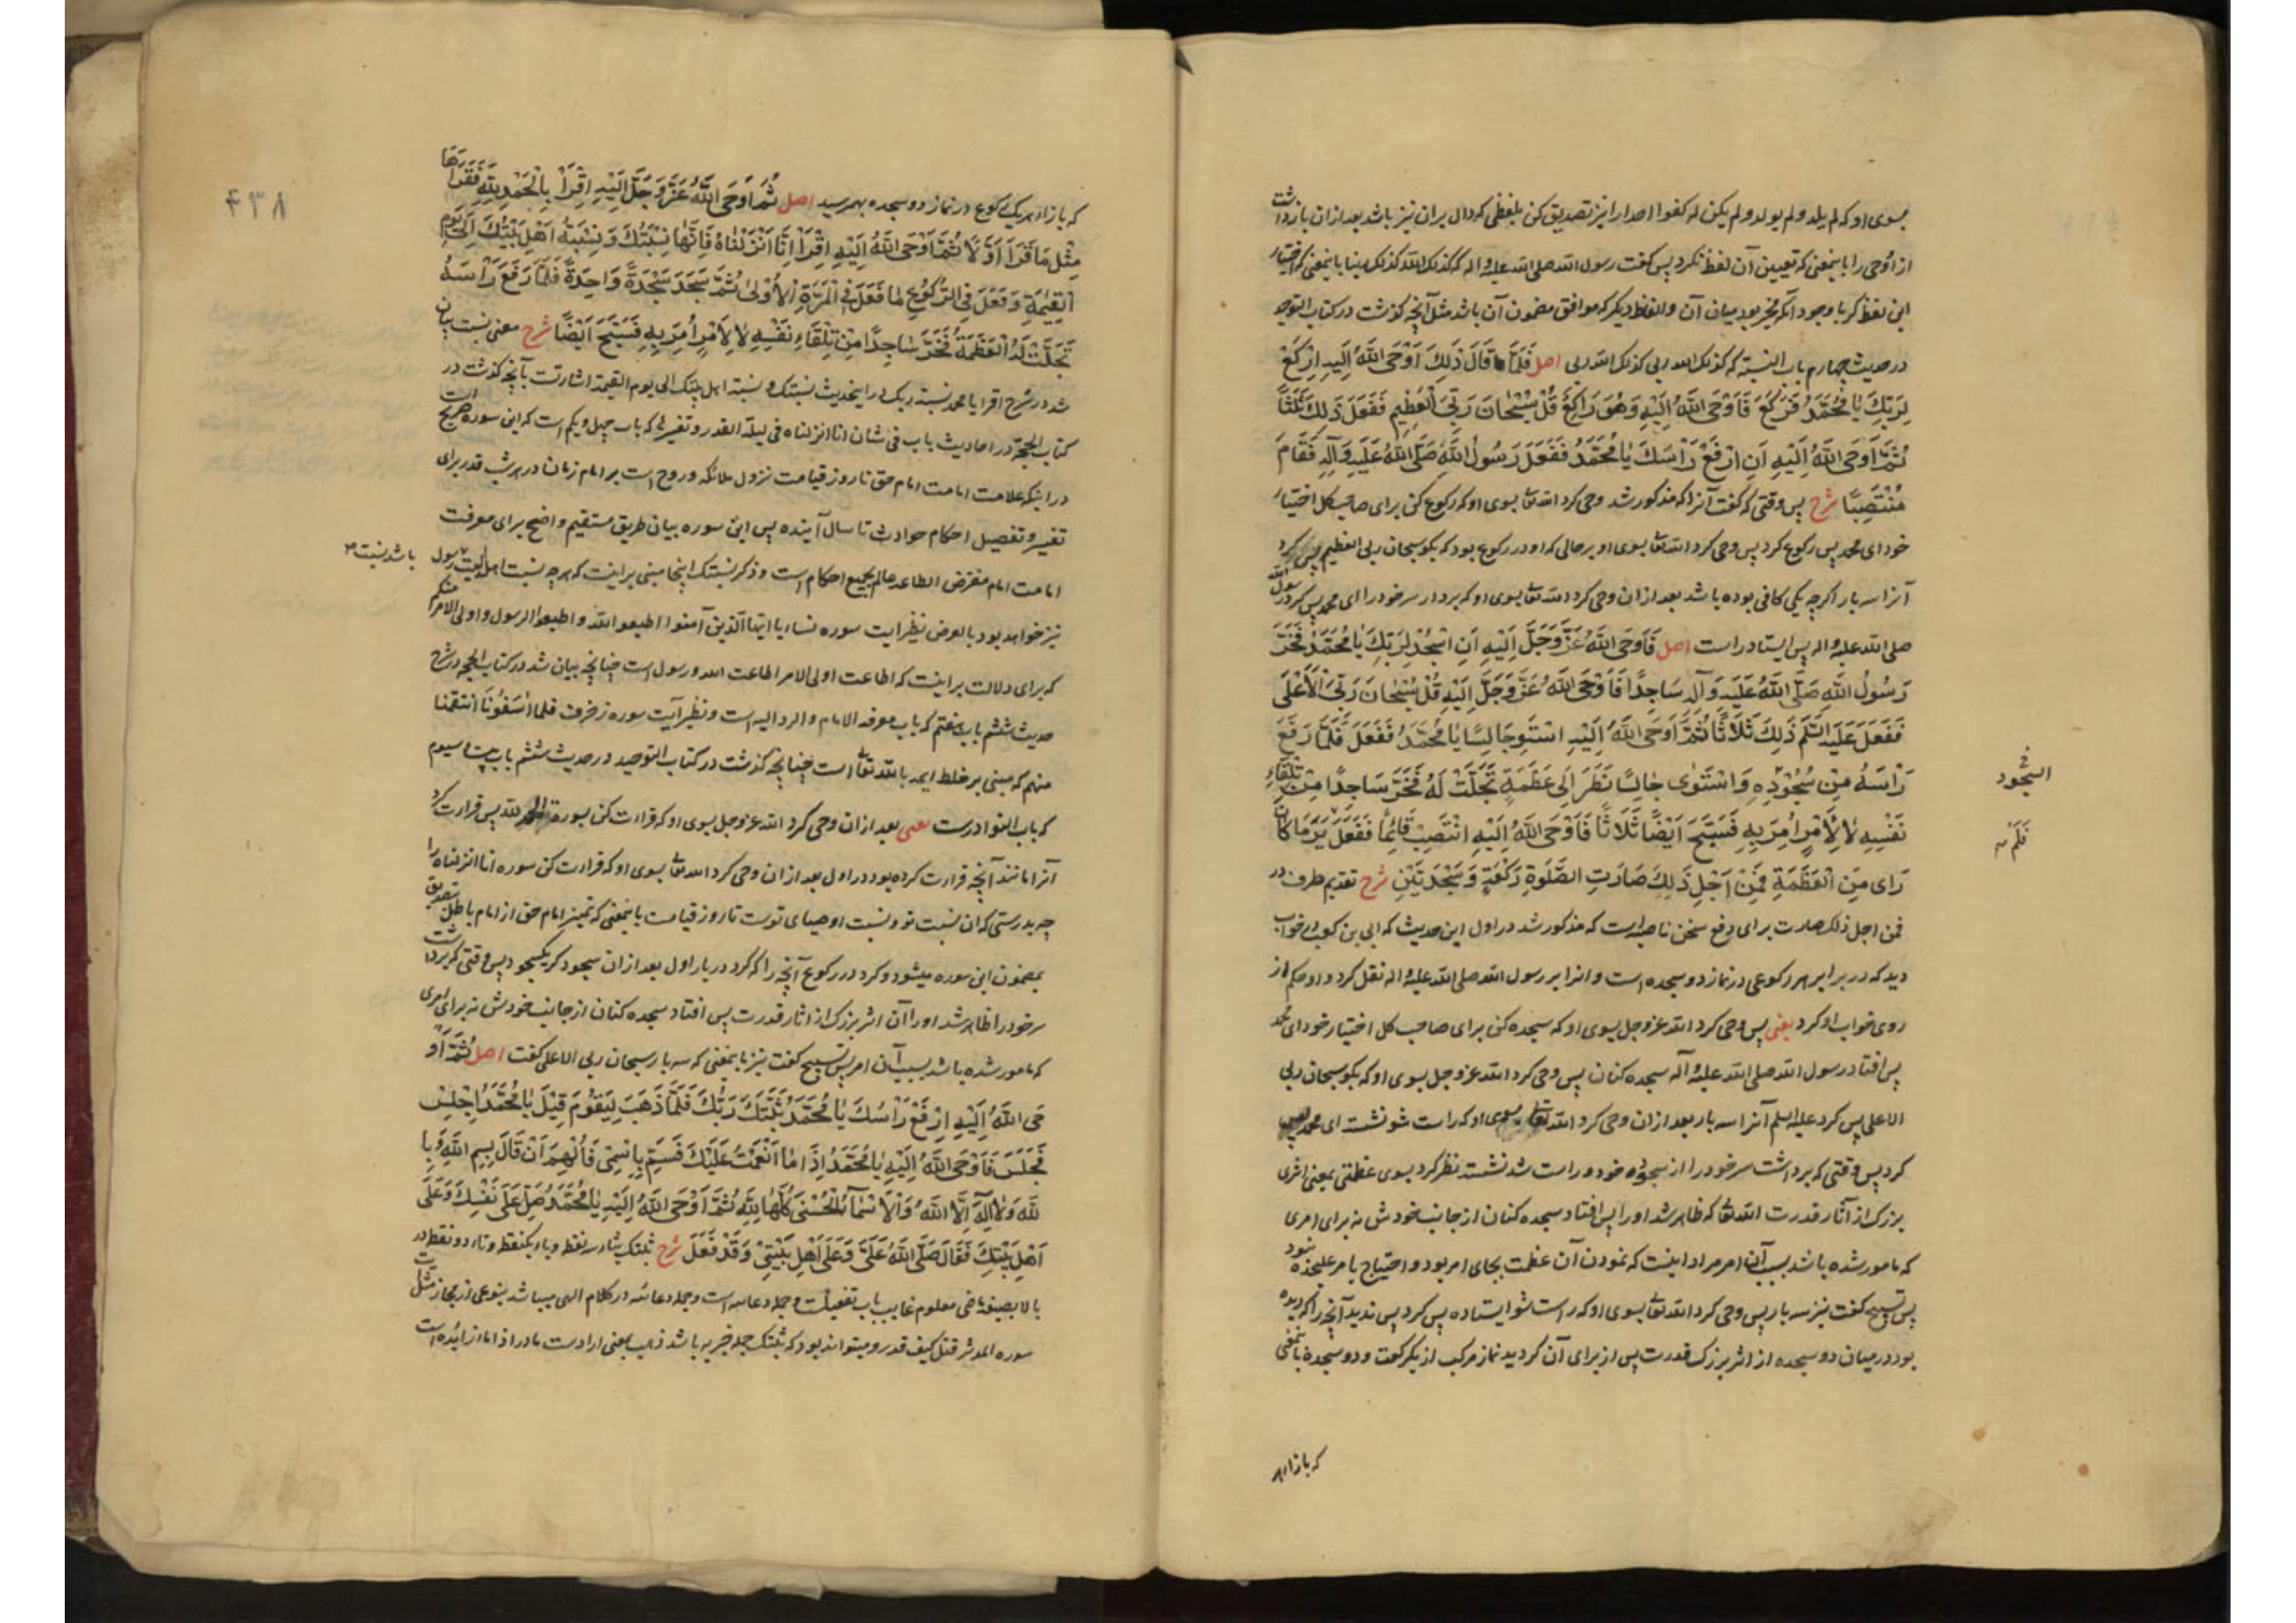 بسوی او که لم یلد و لم یولد و لم یکن له کفوا احد را نیز تصدیق کن بلفظی که دال بران نیز باشد بعد ازان بازداشت
ازو وحی را باینمعنی که تعیین آن لفظ نکرد پس گفت رسول الله صلی الله علیه و اله که کذلک الله کذلک ربنا باینمعنی که اختیار
این لفظ کرد با وجود آنکه مخیر بود میان آن و الفاظ دیگر که موافق مضمون آن باشد مثل آنچه گذشت در کتاب التوحید
در حدیث چهارم باب النسبة که کذلک الله ربی کذلک الله ربی اصل فَلَمَّا قَالَ ذَلِكَ اَوْحَی اللّٰهُ اِلَیْهِ اِرْكَعْ
لِرَبِّكَ یَا مُحَمَّدُ فَرَكَعَ فَاَوْحَی اللّٰهُ اِلَیْهِ وَهُوَ رَاكِعٌ قُلْ سُبْحَانَ رَبِّیَ الْعَظِیمِ فَفَعَلَ ذَلِكَ ثَلٰثًا
ثُمَّ اَوْحَی اللّٰهُ اِلَیْهِ اَنِ ارْفَعْ رَاْسَكَ یَا مُحَمَّدُ فَفَعَلَ رَسُولُ اللّٰهِ صَلَّی اللّٰهُ عَلَیْهِ وَآلِهِ فَقَامَ
مُنْتَصِبًا شرح پس وقتی که گفت آنرا که مذکور شد وحی کرد الله تعا بسوی او که رکوع کن برای صاحب کل اختیار
خود ای محمد پس رکوع کرد پس وحی کرد الله تعا بسوی او بر حالی که او در رکوع بود که بگو سبحان ربی العظیم پس کرد
آنرا سه بار اگرچه یکی کافی بوده باشد بعد ازان وحی کرد الله تعا بسوی او که بردار سر خود را ای محمد پس کرد رسول الله
صلی الله علیه و اله پس ایستاد راست اصل فَاَوْحَی اللّٰهُ عَزَّ وَجَلَّ اِلَیْهِ اَنِ اسْجُدْ لِرَبِّكَ یَا مُحَمَّدُ فَخَرَّ
رَسُولُ اللّٰهِ صَلَّی اللّٰهُ عَلَیْهِ وَآلِهِ سَاجِدًا فَاَوْحَی اللّٰهُ عَزَّ وَجَلَّ اِلَیْهِ قُلْ سُبْحَانَ رَبِّیَ الْاَعْلَی
فَفَعَلَ عَلَیْهِ السَّلَمُ ذَلِكَ ثَلَاثًا ثُمَّ اَوْحَی اللّٰهُ اِلَیْهِ اسْتَوِ جَالِسًا یَا مُحَمَّدُ فَفَعَلَ فَلَمَّا رَفَعَ
رَاْسَهُ مِنْ سُجُوْدِهِ وَاسْتَوٰی جَالِسًا نَظَرَ اِلَی عَظَمَةٍ تَجَلَّتْ لَهُ فَخَرَّ سَاجِدًا مِنْ تِلْقَاءِ
نَفْسِهِ لَا لِاَمْرٍ اُمِرَ بِهِ فَسَبَّحَ اَیْضًا ثَلَاثًا فَاَوْحَی اللّٰهُ اِلَیْهِ انْتَصِبْ قَائِمًا فَفَعَلَ یَرَ مَا كَانَ
رَاٰی مِنَ الْعَظَمَةِ فَمِنْ اَجْلِ ذَلِكَ صَارَتِ الصَّلٰوةِ رَكْعَةً وَسَجْدَتَیْنِ شرح تقدیم ظرف در
فمن اجل ذلک صارت برای دفع سخن ناصبه است که مذکور شد در اول این حدیث که ابی بن کعب در خواب
دید که در برابر هر رکوعی در نماز دو سجده است و انرا بر رسول الله صلی الله علیه و اله نقل کرد و او حکم از
روی خواب او کرد یعنی پس وحی کرد الله عز و جل بسوی او که سجده کن برای صاحب کل اختیار خود ای محمد
پس افتاد رسول الله صلی الله علیه و آله سجده کنان پس وحی کرد الله عز و جل بسوی او که بگو سبحان ربی
الاعلی پس کرد علیه السلم آنرا سه بار بعد ازان وحی کرد الله تعا بسوی او که راست شو نشسته ای محمد پس
کرد پس وقتی که برداشت سر خود را از سجود خود و راست شد نشسته نظر کرد بسوی عظمتی یعنی اثری
بزرک از آثار قدرت الله تعا که ظاهر شد او را پس افتاد سجده کنان از جانب خودش نه برای امری
که مامور شده باشد بسبب آن امر مراد اینست که نمودن آن عظمت بجای امر بود و احتیاج بامر علیحده نبود
پس تسبیح گفت نیز سه بار پس وحی کرد الله تعا بسوی او که راست شو ایستاده پس کرد پس ندید آنچه را که دیده
بود در میان دو سجده از اثر بزرک قدرت پس از برای آن گردید نماز مرکب از یک رکعت و دو سجده باینمعنی
فی
السجود
فَلَمْ
که بازا هر
۴۳۸
که بازاء هر یک رکوع در نماز دو سجده بهم رسید اصل ثُمَّ اَوْحَی اللّٰهُ عَزَّ وَجَلَّ اِلَیْهِ اِقْرَاْ بِالْحَمْدِ لِلّٰهِ فَقَرَاَهَا
مِثْلَ مَا قَرَاَ اَوَّلًا ثُمَّ اَوْحَی اللّٰهُ اِلَیْهِ اِقْرَاْ اِنَّا اَنْزَلْنَاهُ فَاِنَّهَا نِسْبَتُكَ وَنِسْبَةُ اَهْلِ بَیْتِكَ اِلَی یَوْمِ
الْقِیٰمَةِ وَفَعَلَ فِی الرُّكُوْعِ مَا فَعَلَ فِی الْمَرَّةِ الْاُوْلٰی ثُمَّ سَجَدَ سَجْدَةً وَاحِدَةً فَلَمَّا رَفَعَ رَاْسَهُ
تَجَلَّتْ لَهُ الْعَظَمَةُ فَخَرَّ سَاجِدًا مِنْ تِلْقَاءِ نَفْسِهِ لَا لِاَمْرٍ اُمِرَ بِهِ فَسَبَّحَ اَیْضًا شرح معنی نسبت بیان
شد در شرح اقرا یا محمد نسبة ربک در اینحدیث نسبتک و نسبة اهل بیتک الی یوم القیمة اشارتست بآنچه گذشت در
کتاب الحجة در احادیث باب فی شان انا انزلناه فی لیلة القدر و تفسیرها که باب چهل و یکم است که این سوره صریح است
در اینکه علامت امامت امام حق تا روز قیامت نزول ملائکه و روح است بر امام زمان در هر شب قدر برای
تفسیر و تفصیل احکام حوادث تا سال آینده پس این سوره بیان طریق مستقیم واضح برای معرفت
امامت امام مفترض الطاعه عالم بجمیع احکام است و ذکر نسبتک اینجا مبنی بر اینست که هر چه نسبت اهل بیت رسول
باشد نسبت
نیز خواهد بود بالعرض نظیر ایت سوره نساء یا ایها الذین آمنوا اطیعوا الله و اطیعوا الرسول و اولی الامر منکم
که برای دلالت بر اینست که اطاعت اولی الامر اطاعت الله و رسول است چنانچه بیان شد در کتاب الحجه در شرح
حدیث ششم باب هفتم که باب معرفة الامام و الرد الیه است و نظیر آیت سوره زخرف فلما اسفونا انتقمنا
منهم که مبنی بر خلط ایمه بالله تعا است چنانچه گذشت در کتاب التوحید در حدیث ششم باب بیست و سیوم
که باب النوادر است یعنی بعد ازان وحی کرد الله عز و جل بسوی او که قراءت کن بسورة الحمد لله پس قراءت کرد
آنرا مانند آنچه قراءت کرده بود در اول بعد ازان وحی کرد الله تعا بسوی او که قراءت کن سوره انا انزلناه را
چه بدرستی که ان نسبت تو و نسبت اوصیای توست تا روز قیامت باینمعنی که تمییز امام حق از امام باطل بتصدیق
بمضمون این سوره میشود و کرد در رکوع آنچه را که کرد در بار اول بعد ازان سجود کرد یک سجود پس وقتی که برداشت
سر خود را ظاهر شد او را آن اثر بزرک از اثار قدرت پس افتاد سجده کنان از جانب خودش نه برای امری
که مامور شده باشد بسبب آن امر پس تسبیح گفت نیز باینمعنی که سه بار سبحان ربی الاعلی گفت اصل ثُمَّ اَوْ
حَی اللّٰهُ اِلَیْهِ اِرْفَعْ رَاْسَكَ یَا مُحَمَّدُ ثَبَّتَكَ رَبُّكَ فَلَمَّا ذَهَبَ لِیَقُوْمَ قِیْلَ یَا مُحَمَّدُ اجْلِسْ
فَجَلَسَ فَاَوْحَی اللّٰهُ اِلَیْهِ یَا مُحَمَّدُ اِذَا مَا اَنْعَمْتُ عَلَیْكَ فَسَمِّ بِاسْمِیْ فَاُلْهِمَ اَنْ قَالَ بِسْمِ اللّٰهِ وَبِا
للّٰهِ وَلَا اِلٰهَ اِلَّا اللّٰهُ وَالْاَسْمَاءُ الْحُسْنٰی كُلُّهَا لِلّٰهِ ثُمَّ اَوْحَی اللّٰهُ اِلَیْهِ یَا مُحَمَّدُ صَلِّ عَلَی نَفْسِكَ وَعَلَی
اَهْلِ بَیْتِكَ فَقَالَ صَلَّی اللّٰهُ عَلَیَّ وَعَلَی اَهْلِ بَیْتِیْ وَقَدْ فَعَلَ شرح ثبتک بثاء سه نقطه و باء یکنقطه و تاء دو نقطه در
بالا بصیغه ماضی معلوم غایب باب تفعیلست و جمله دعائیه است و جمله دعائیه در کلام الهی میباشد بنوعی از مجاز مثل
سوره المدثر فقتل کیف قدر و میتواند بود که ثبتک جمله خبریه باشد ذهب بمعنی ارادست ما در اذا ما زایده است